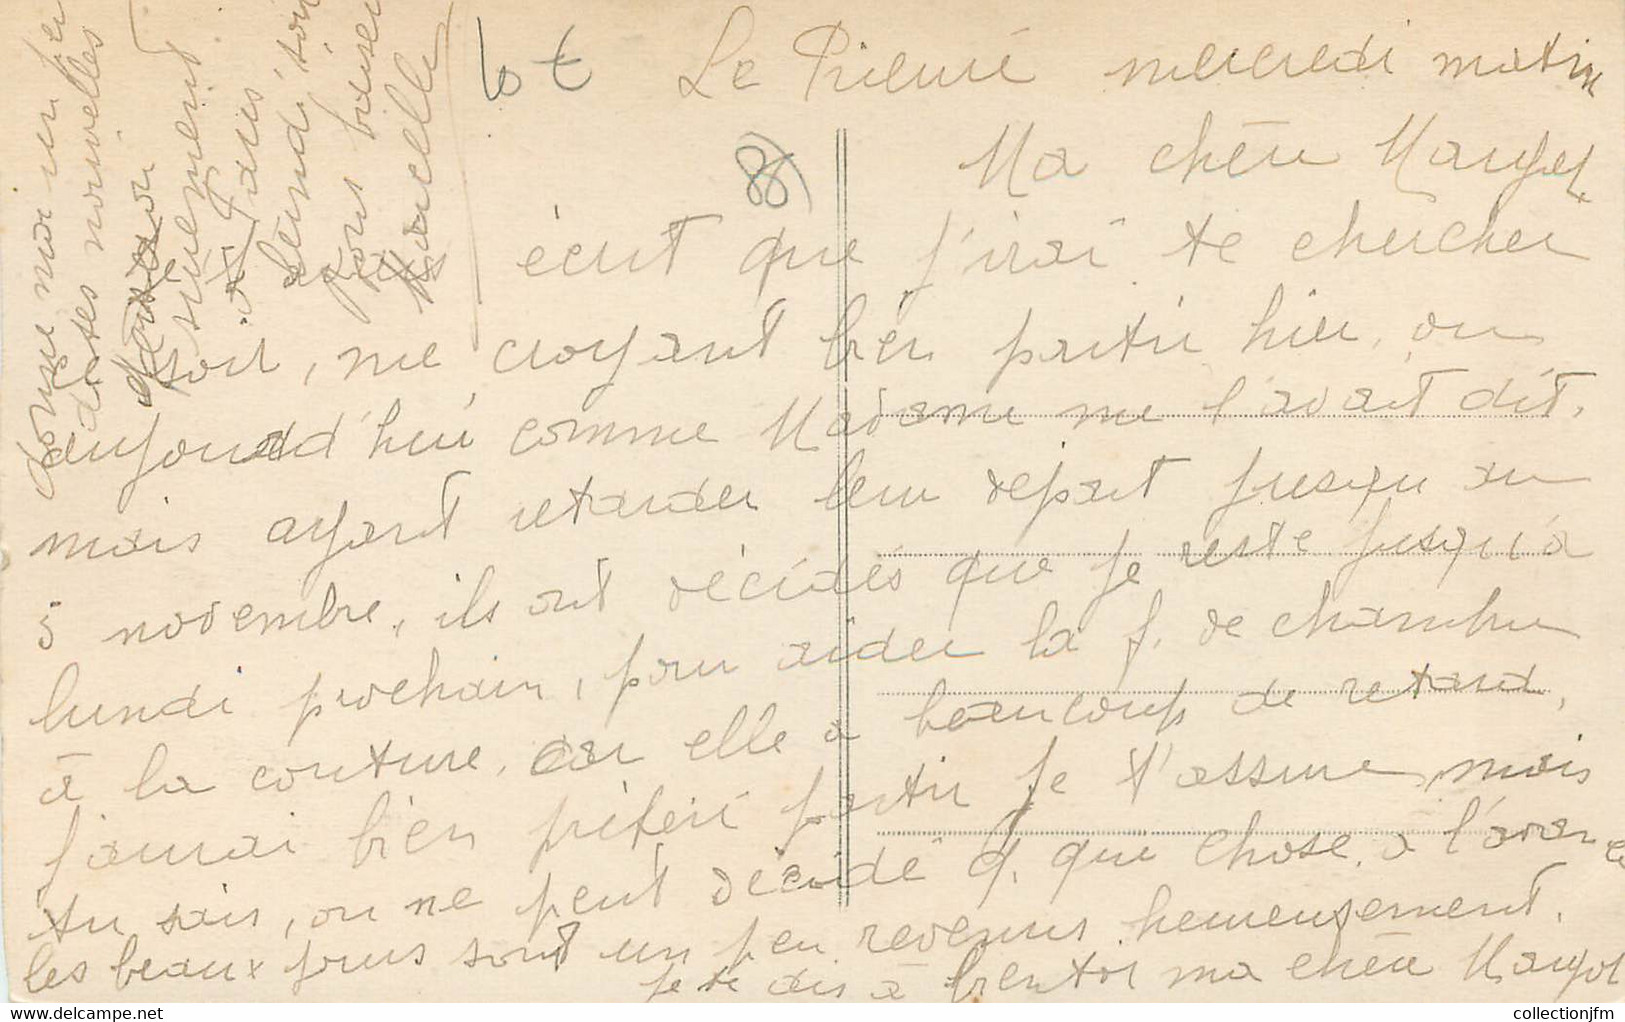 Lot
Le Prieuré mercredi matin
8
Ma chère Margot
écrit que j'irai te chercher
soir, me croyant bien partir hier, ou
aujourd'hui comme Madame me l'avait dit,
mais ayant retarder leur départ jusqu'au
5 novembre, ils ont décidés que je reste jusqu'à
lundi prochain, pour aider la f. de chambre
à la couture, car elle a beaucoup de retard,
j'aurai bien préféré partir je t'assure, mais
tu sais, on ne peut décidé q. que chose à l'avance
les beaux jours sont un peu revenus heureusement.
je te dis à bientôt ma chère Margot
donne moi un peu
de tes nouvelles
sûrement
à Paris
lundi soir
bons baisers
Marcelle
collectionjfm
delcampe.net